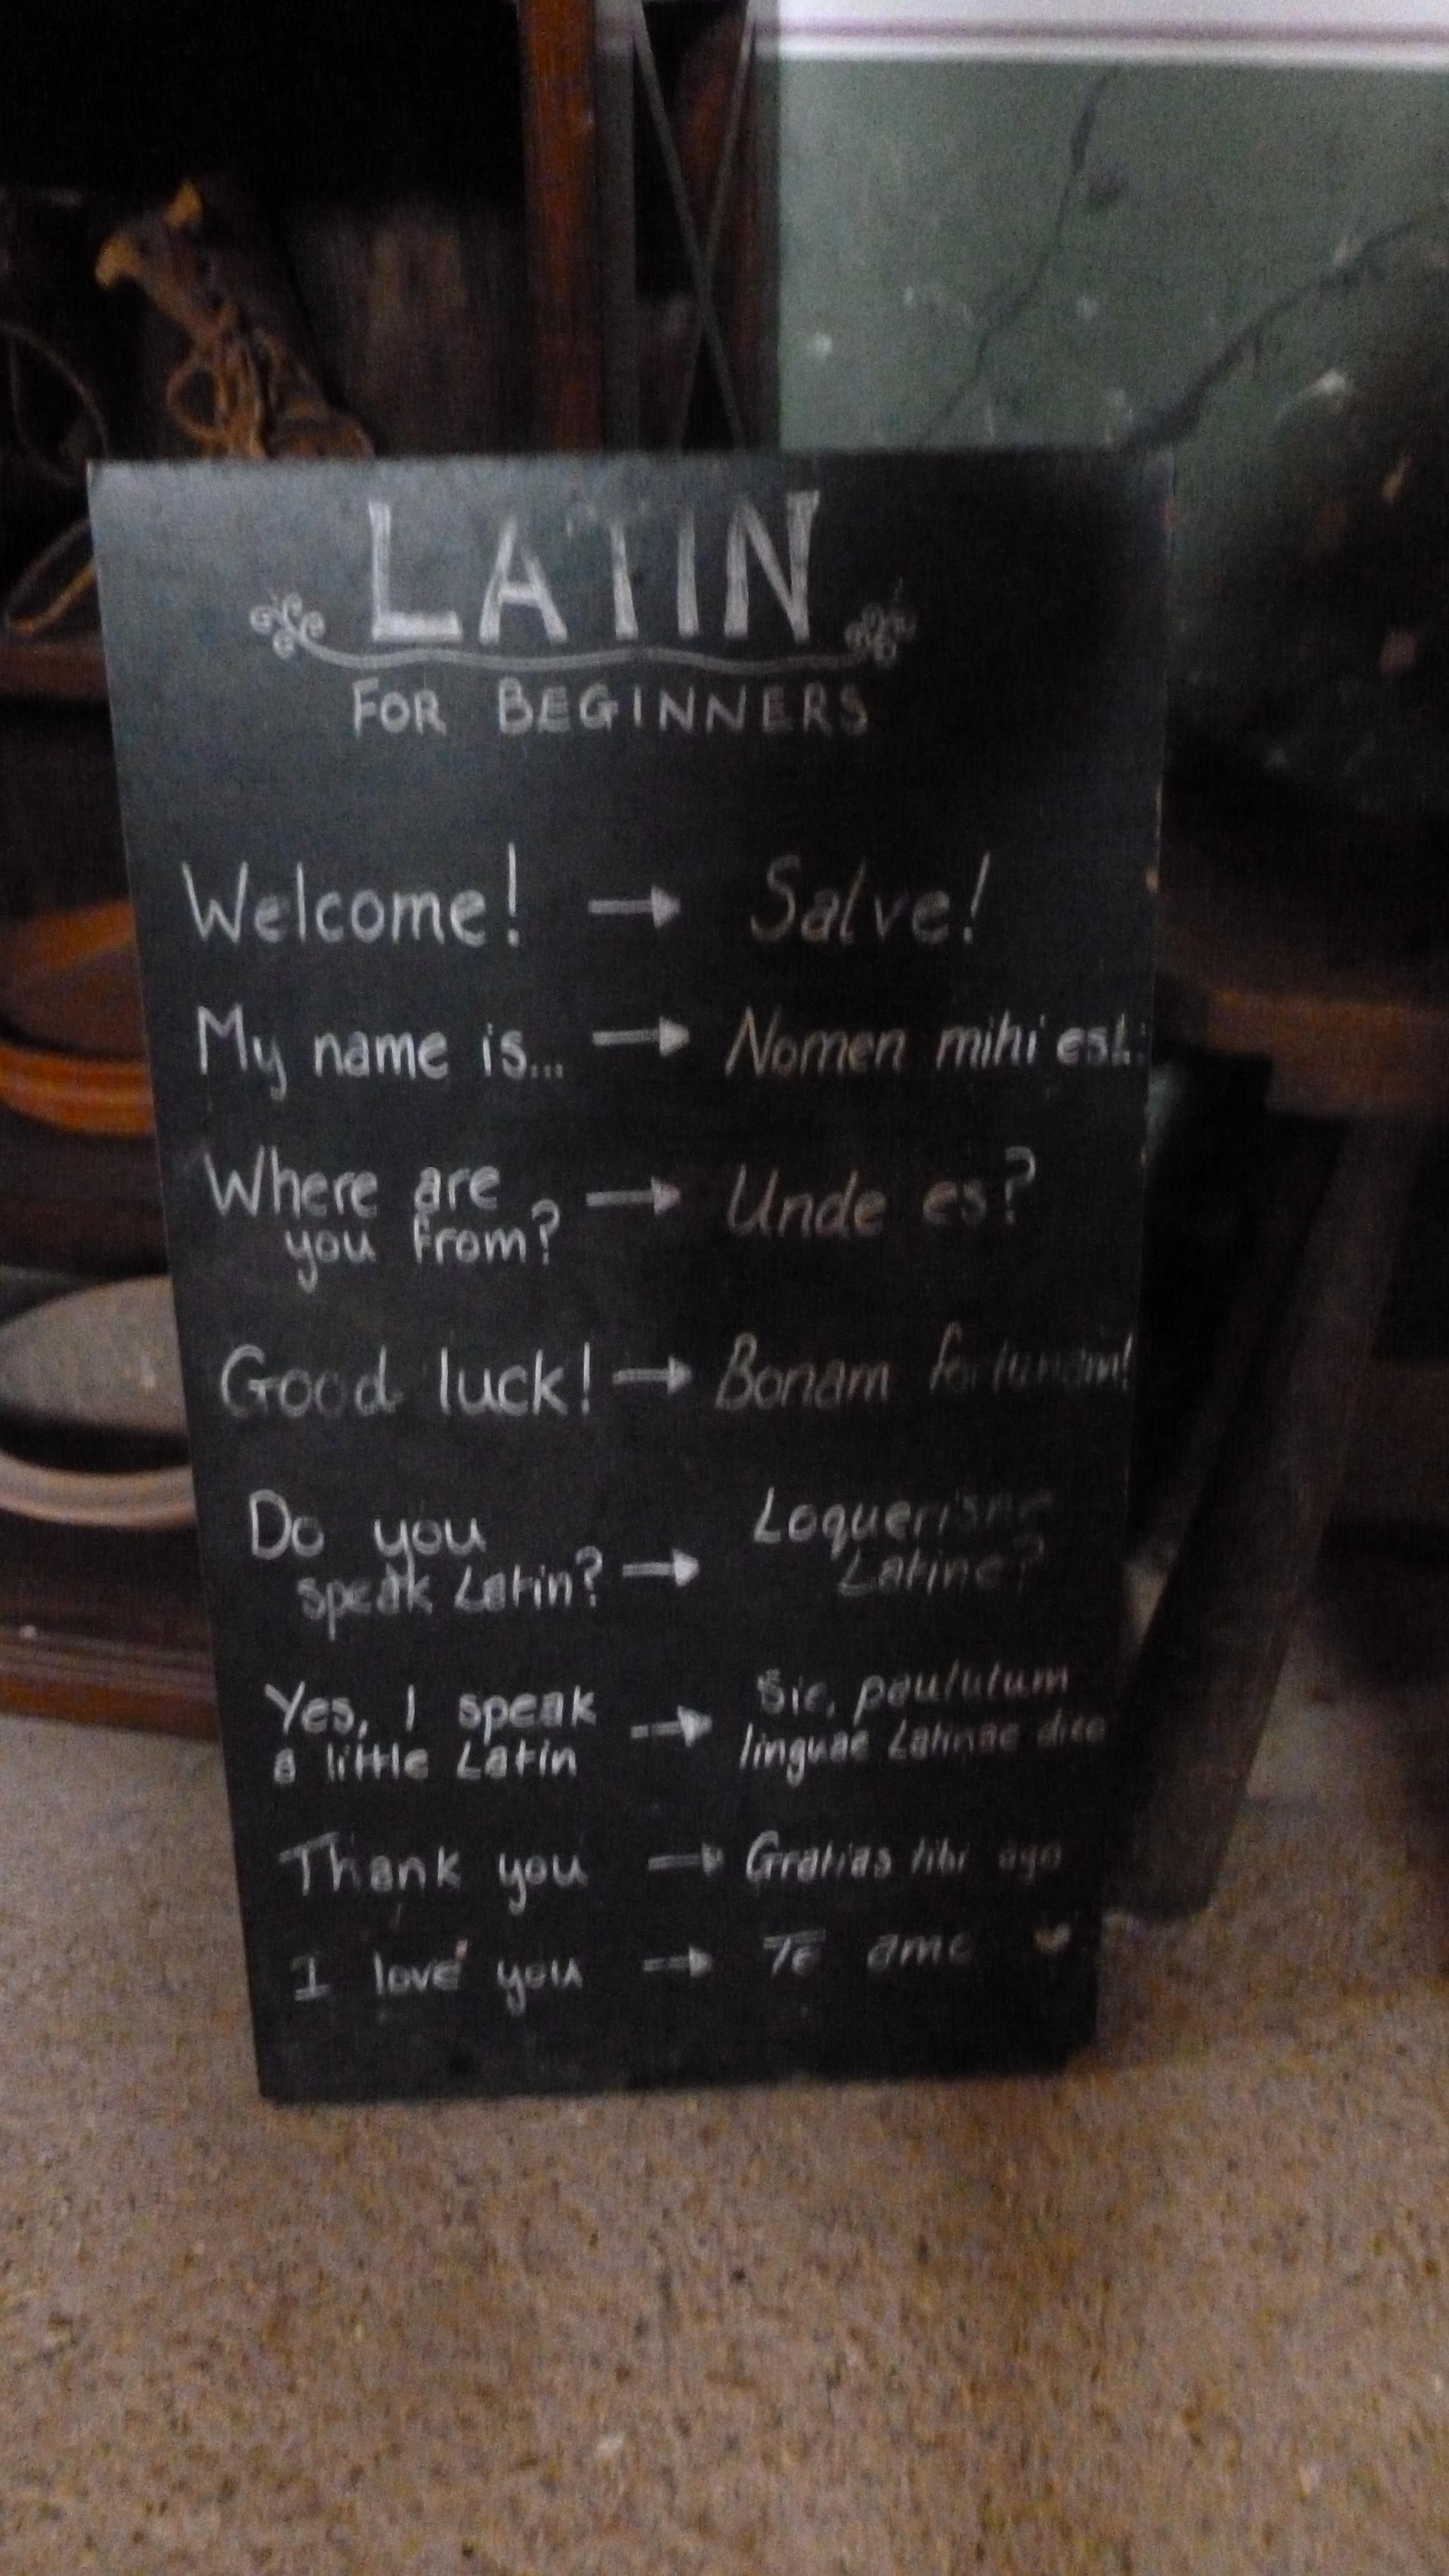 LATIN
FOR BEGINNERS
Welcome! → Salve!
My name is... → Nomen mihi est:
Where are
you from? → Unde es?
Good luck! → Bonam fortunam!
Do you
speak Latin? → Loquerisne
Latine?
Yes, I speak
a little Latin → Sic, paululum
linguae Latinae dico
Thank you → Gratias tibi ago
I love you → Te amo